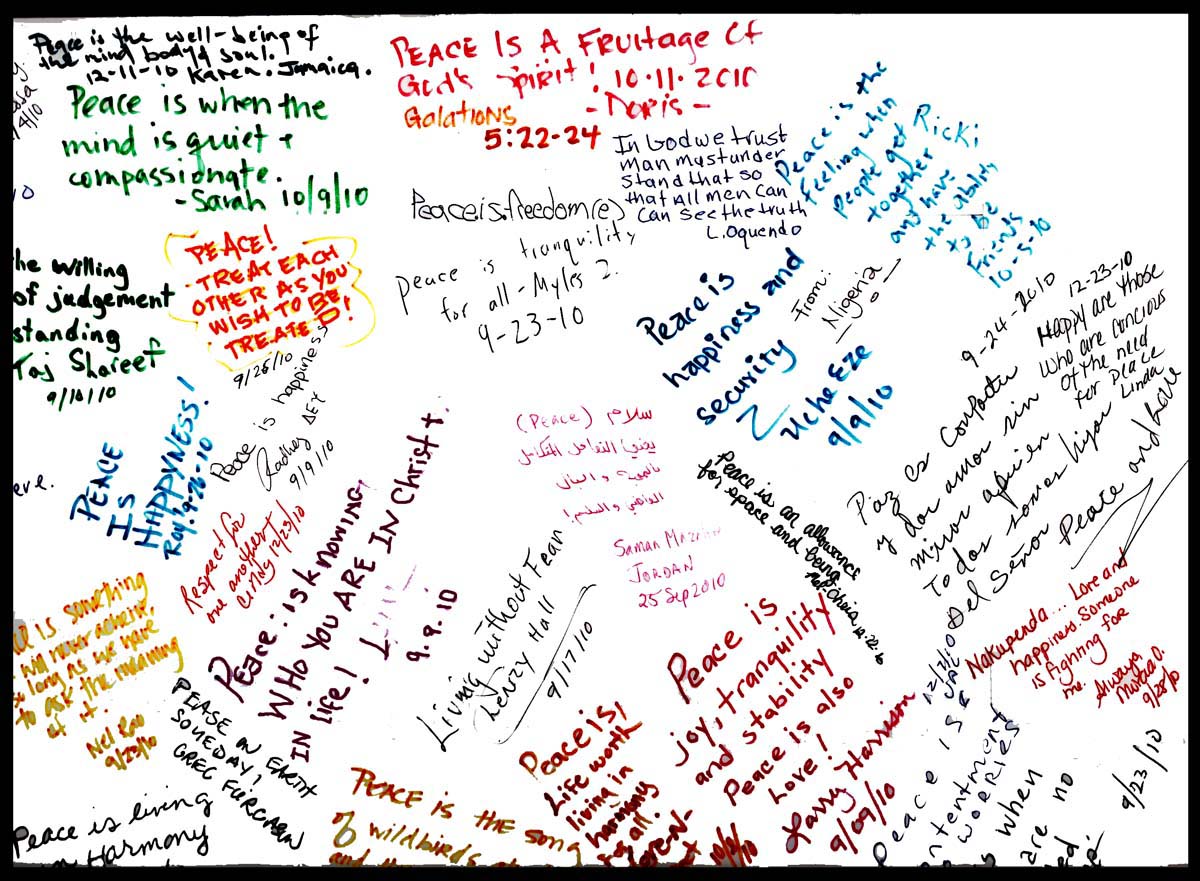 Peace is the well-being of
the mind body & soul.
12-11-10 Karen. Jamaica.
Peace is when the
mind is quiet +
compassionate.
- Sarah 10/9/10
PEACE IS A FRUITAGE Of
God's Spirit! 10·11·2010
- Doris -
Galations
5:22-24
In God we trust
man must under
stand that so
that All men can
can see the truth
L.Oquendo
Peace is the
feeling when
people get
together
and have
the ability
to be
Friends
10-5-10
Ricki
Peace is freedom(e)
Peace is tranquility
for all - Myles Z.
9-23-10
PEACE!
TREAT EACH
OTHER AS YOU
WISH TO BE
TREATED!
9/26/10
he willing
of judgement
standing
Taj Shareef
9/10/10
ere.
PEACE
IS
HAPPYNESS!
Roy. 9-26-10
Peace is happiness
9/9/10
Peace is
happiness and
security
Uche Eze
9/9/10
From:
Nigeria
9-24-2010
Paz es Compartir
y dar amor sin
mirar a quien
Todos somos hijos
Del Señor Peace and Love
12-23-10
Happy are those
who are concious
of the need
for peace
Linda
(Peace) سلام
يعني التعامل المتكامل
Saman
JORDAN
25 Sep 2010
Peace is an allowance
for space and being
12-22-10
Respect for
one another
Cindy 12/23/10
Peace is knowing
WHO YOU ARE IN Christ +
IN Life!
9.9.10
Living without Fear
Lenzy Hall
9/17/10
is something
will never achieve,
so long as we have
to ask the meaning
of it.
Nel Rao
9/23/10
PEASE ON EARTH
SOMEDAY!
GREG FURGASUN
Peace is living
Harmony
PEACE IS THE SONG
of wildbirds
Peace is,
Life worth
living in
harmony
for all.
10/2/10
Peace is
joy, tranquility
and stability
Peace is also
Love!
Larry Harrison
9/09/10
Nakupenda... Love and
happiness. Someone
is fighting for
me. Always
9/28/10
Peace is
contentment
worries
when
are no
9/23/10